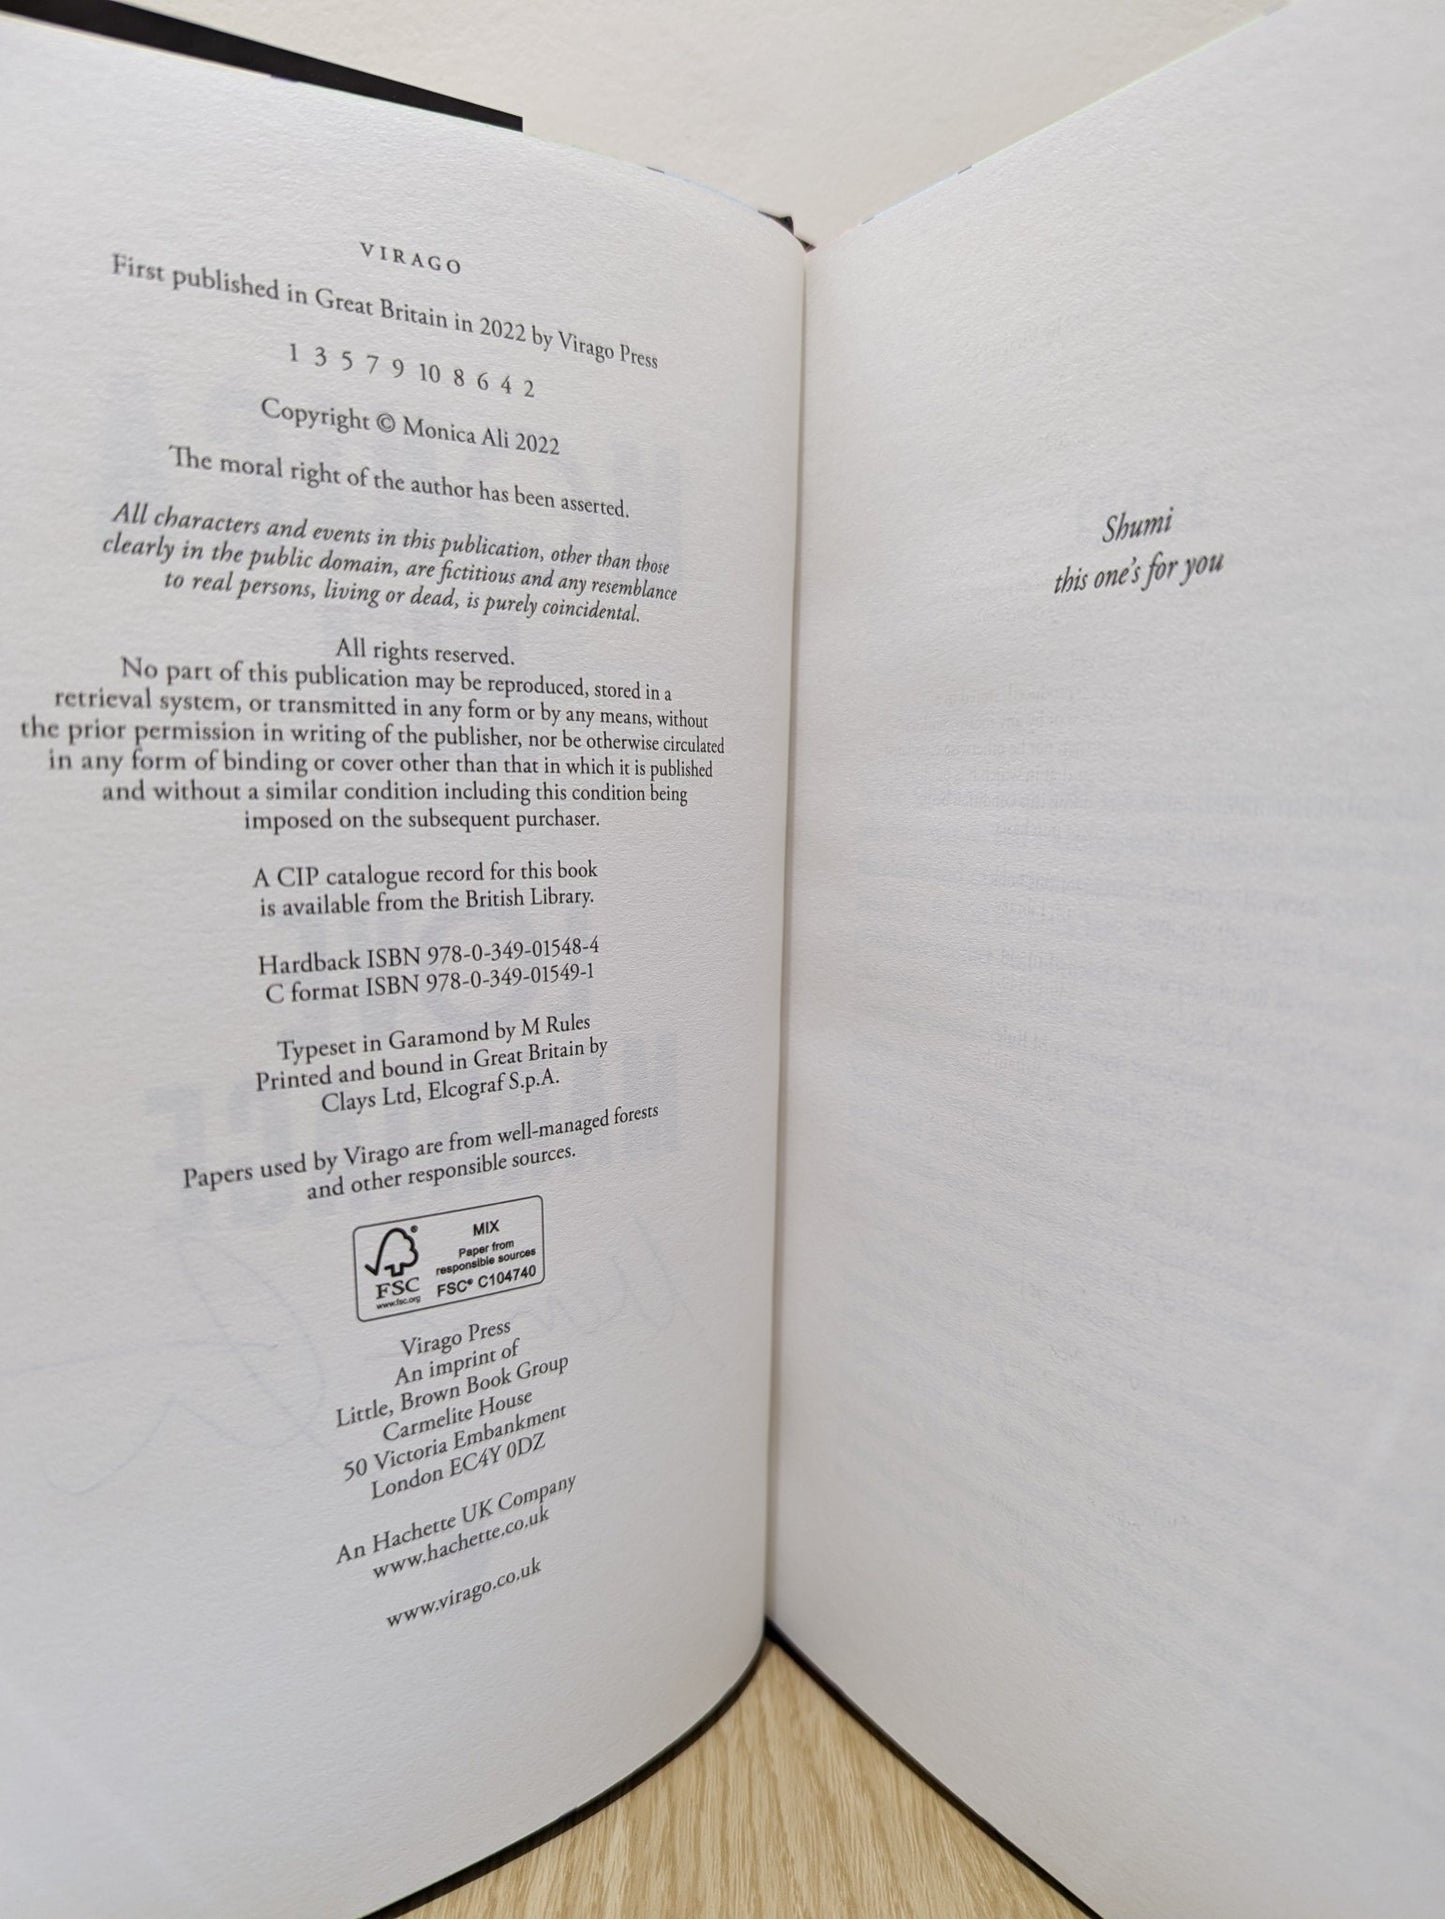 VIRAGO
First published in Great Britain in 2022 by Virago Press
1 3 5 7 9 10 8 6 4 2
Copyright © Monica Ali 2022
The moral right of the author has been asserted.
All characters and events in this publication, other than those
clearly in the public domain, are fictitious and any resemblance
to real persons, living or dead, is purely coincidental.
All rights reserved.
No part of this publication may be reproduced, stored in a
retrieval system, or transmitted in any form or by any means, without
the prior permission in writing of the publisher, nor be otherwise circulated
in any form of binding or cover other than that in which it is published
and without a similar condition including this condition being
imposed on the subsequent purchaser.
A CIP catalogue record for this book
is available from the British Library.
Hardback ISBN 978-0-349-01548-4
C format ISBN 978-0-349-01549-1
Typeset in Garamond by M Rules
Printed and bound in Great Britain by
Clays Ltd, Elcograf S.p.A.
Papers used by Virago are from well-managed forests
and other responsible sources.
FSC®
www.fsc.org
MIX
Paper from
responsible sources
FSC® C104740
Virago Press
An imprint of
Little, Brown Book Group
Carmelite House
50 Victoria Embankment
London EC4Y 0DZ
An Hachette UK Company
www.hachette.co.uk
www.virago.co.uk
Shumi
this one's for you